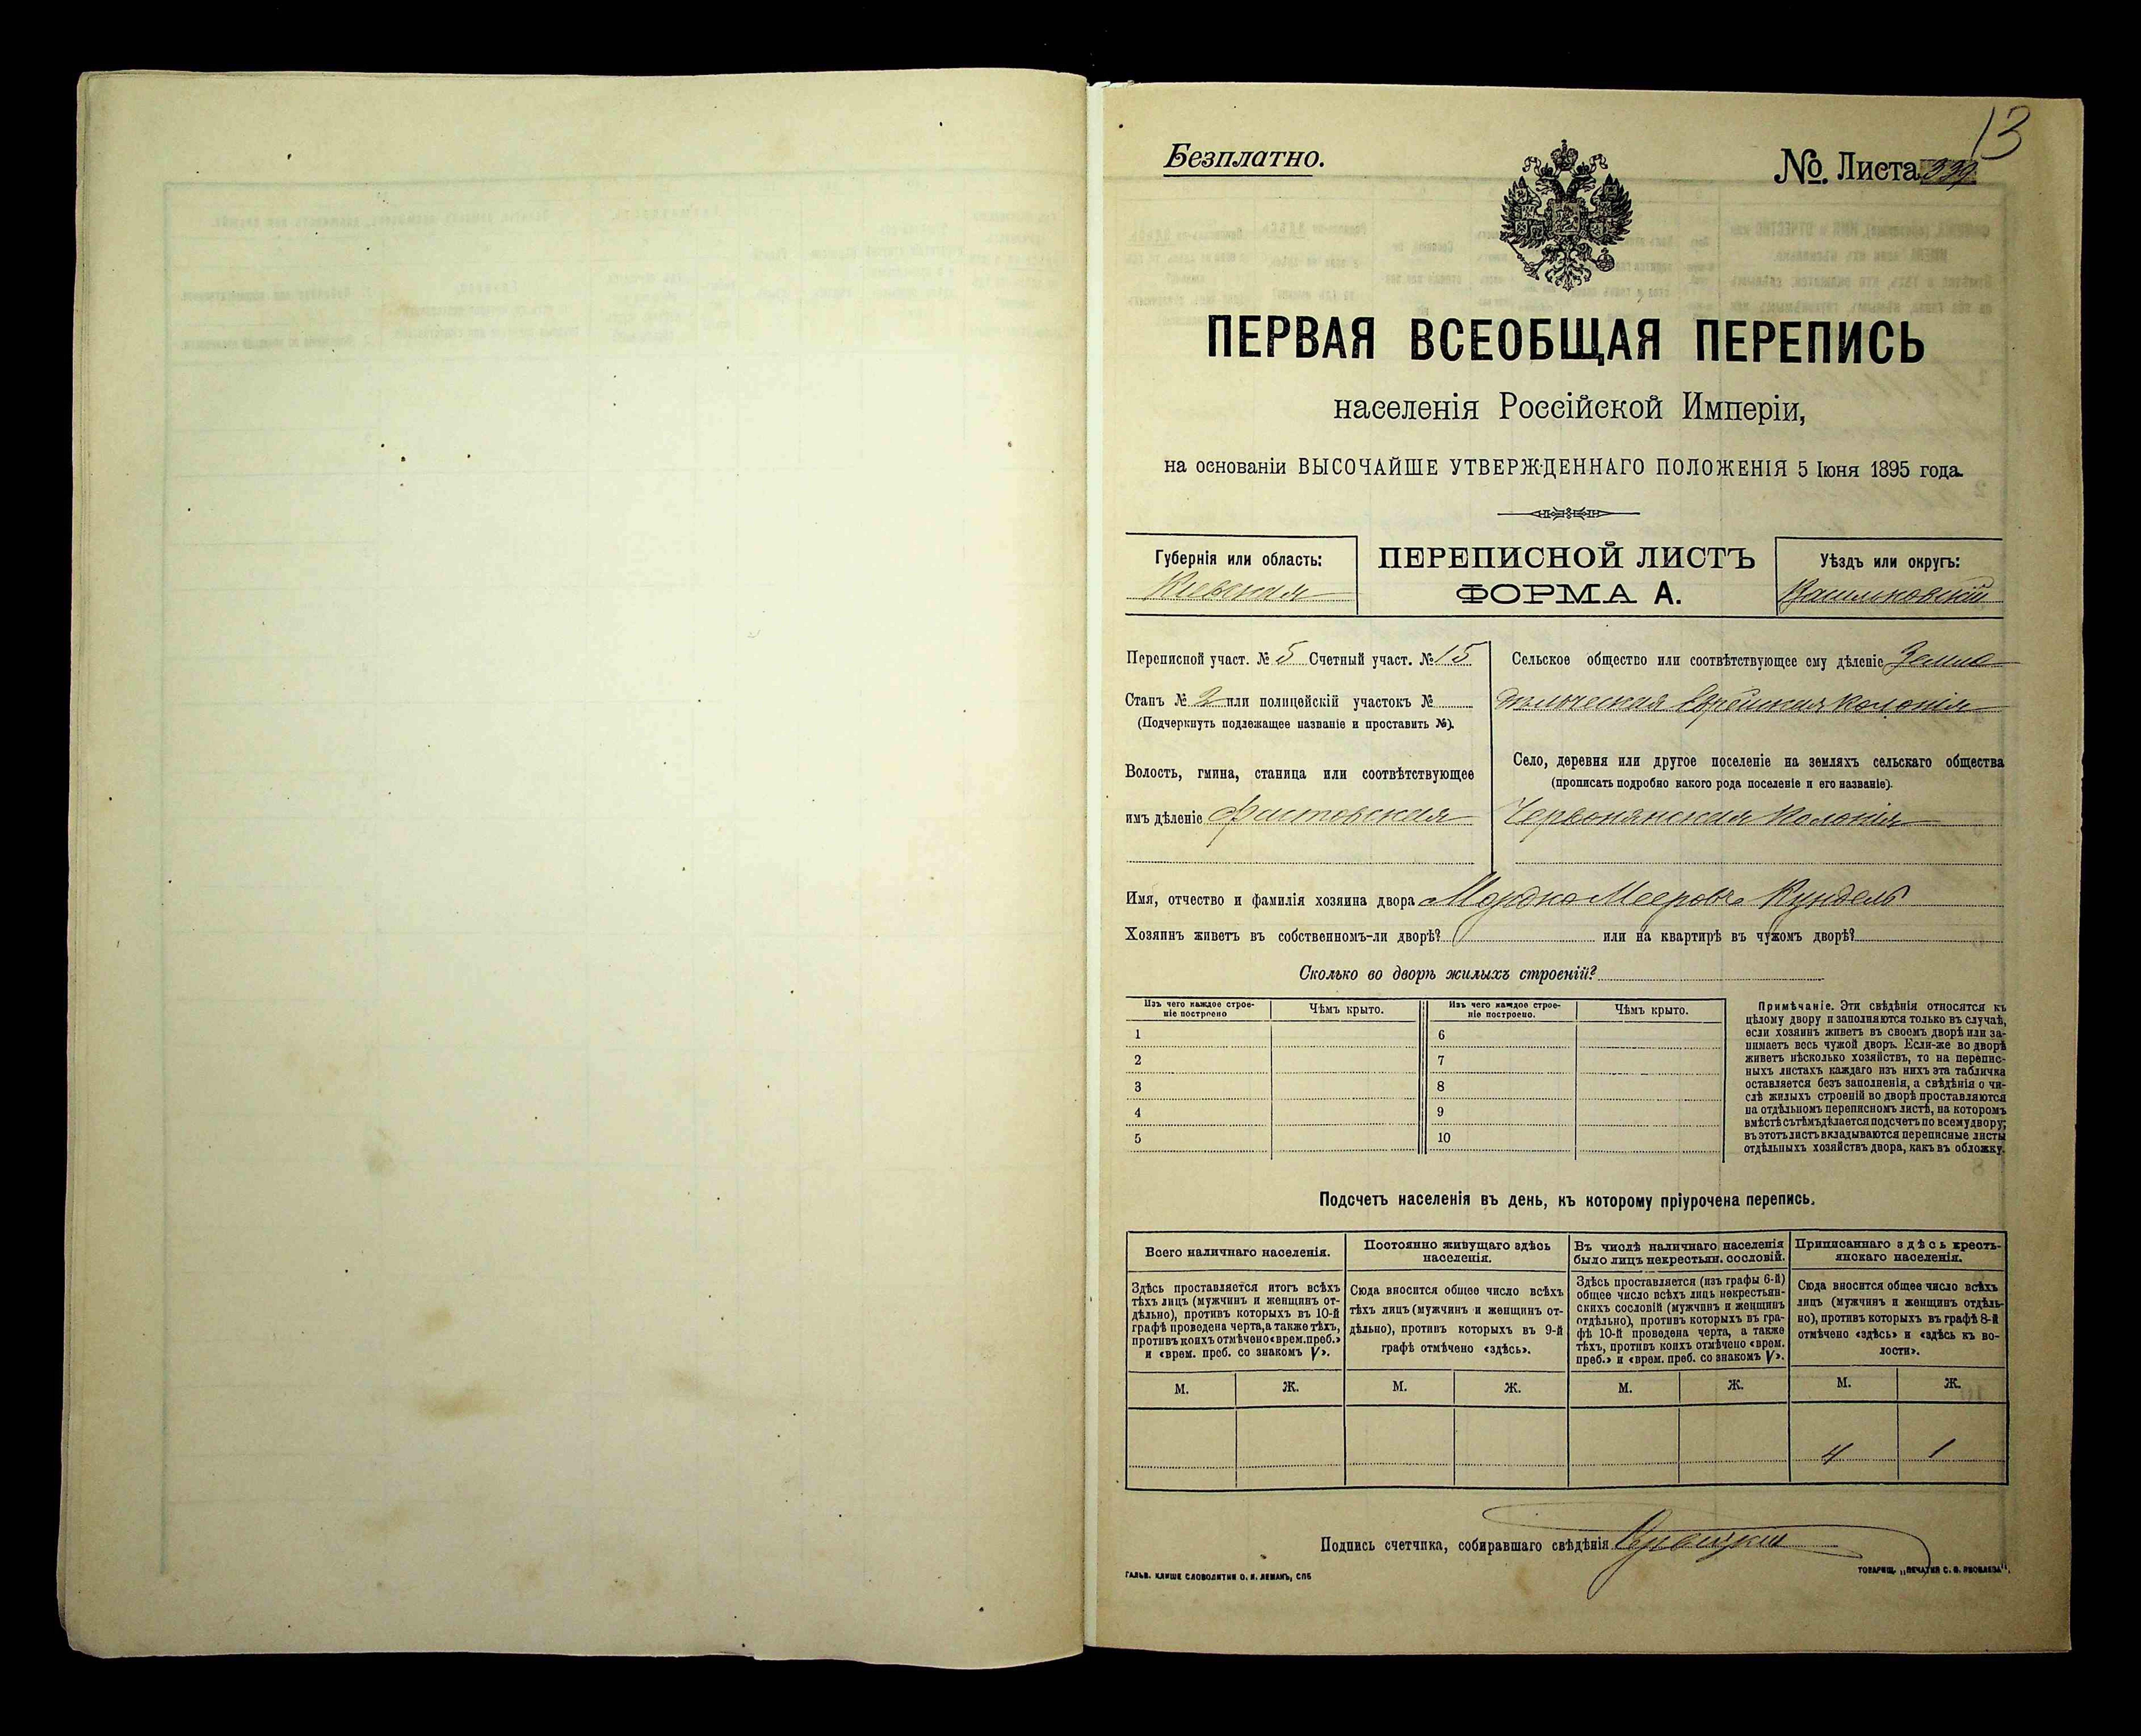 13
Безплатно.
№. Листа 339
ПЕРВАЯ ВСЕОБЩАЯ ПЕРЕПИСЬ
населенія Россійской Имперіи,
на основаніи ВЫСОЧАЙШЕ УТВЕРЖДЕННАГО ПОЛОЖЕНІЯ 5 Іюня 1895 года.
Губернія или область:
Кіевская
ПЕРЕПИСНОЙ ЛИСТЪ
ФОРМА А.
Уѣздъ или округъ:
Васильковскій
Переписной участ. № 5 Счетный участ. № 15
Станъ № 2 или полицейскій участокъ №
(Подчеркнуть подлежащее названіе и проставить №).
Волость, гмина, станица или соотвѣтствующее
имъ дѣленіе Фастовская
Сельское общество или соотвѣтствующее ему дѣленіе Земле
дѣльческая Еврейская Колонія
Село, деревня или другое поселеніе на земляхъ сельскаго общества
(прописать подробно какого рода поселеніе и его названіе).
Червонянская Колонія
Имя, отчество и фамилія хозяина двора Мордко Мееровъ Кундель
Хозяинъ живетъ въ собственномъ-ли дворѣ? или на квартирѣ въ чужомъ дворѣ?
Сколько во дворѣ жилыхъ строеній?
Изъ чего каждое строе-
ніе построено
Чѣмъ крыто.
Изъ чего каждое строе-
ніе построено.
Чѣмъ крыто.
1 6
2 7
3 8
4 9
5 10
Примѣчаніе. Эти свѣдѣнія относятся къ
цѣлому двору и заполняются только въ случаѣ,
если хозяинъ живетъ въ своемъ дворѣ или за-
нимаетъ весь чужой дворъ. Если-же во дворѣ
живетъ нѣсколько хозяйствъ, то на перепис-
ныхъ листахъ каждаго изъ нихъ эта табличка
оставляется безъ заполненія, а свѣдѣнія о чи-
слѣ жилыхъ строеній во дворѣ проставляются
на отдѣльномъ переписномъ листѣ, на которомъ
вмѣстѣ съ тѣмъ дѣлается подсчетъ по всему двору;
въ этотъ листъ вкладываются переписные листы
отдѣльныхъ хозяйствъ двора, какъ въ обложку.
Подсчетъ населенія въ день, къ которому пріурочена перепись.
Всего наличнаго населенія.
Здѣсь проставляется итогъ всѣхъ
тѣхъ лицъ (мужчинъ и женщинъ от-
дѣльно), противъ которыхъ въ 10-й
графѣ проведена черта, а также тѣхъ,
противъ коихъ отмѣчено «врем. преб.»
и «врем. преб. со знакомъ V».
Постоянно живущаго здѣсь
населенія.
Сюда вносится общее число всѣхъ
тѣхъ лицъ (мужчинъ и женщинъ от-
дѣльно), противъ которыхъ въ 9-й
графѣ отмѣчено «здѣсь».
Въ числѣ наличнаго населенія
было лицъ некрестьян. сословій.
Здѣсь проставляется (изъ графы 6-й)
общее число всѣхъ лицъ некрестьян-
скихъ сословій (мужчинъ и женщинъ
отдѣльно), противъ которыхъ въ гра-
фѣ 10-й проведена черта, а также
тѣхъ, противъ коихъ отмѣчено «врем.
преб.» и «врем. преб. со знакомъ V».
Приписаннаго здѣсь кресть-
янскаго населенія.
Сюда вносится общее число всѣхъ
лицъ (мужчинъ и женщинъ отдѣль-
но), противъ которыхъ въ графѣ 8-й
отмѣчено «здѣсь» и «здѣсь къ во-
лости».
М. Ж. М. Ж. М. Ж. М. Ж.
4 1
Подпись счетчика, собиравшаго свѣдѣнія
ГАЛЬВ. КЛИШЕ СЛОВОЛИТНИ О. И. ЛЕМАНЪ, СПБ
ТОВАРИЩ. „ПЕЧАТНЯ С. П. ЯКОВЛЕВА".